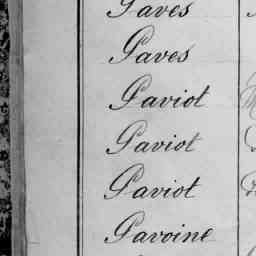 Paves
Paves
Paviot
Paviot
Paviot
Pavoine